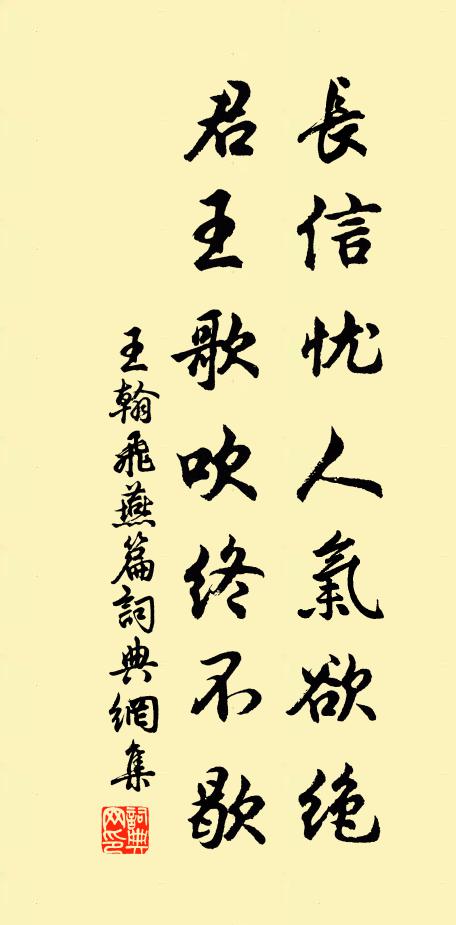 長信忧人氣欲絶
君王歌吹終不歇
王翰飛燕篇詞典網集
詞典网印